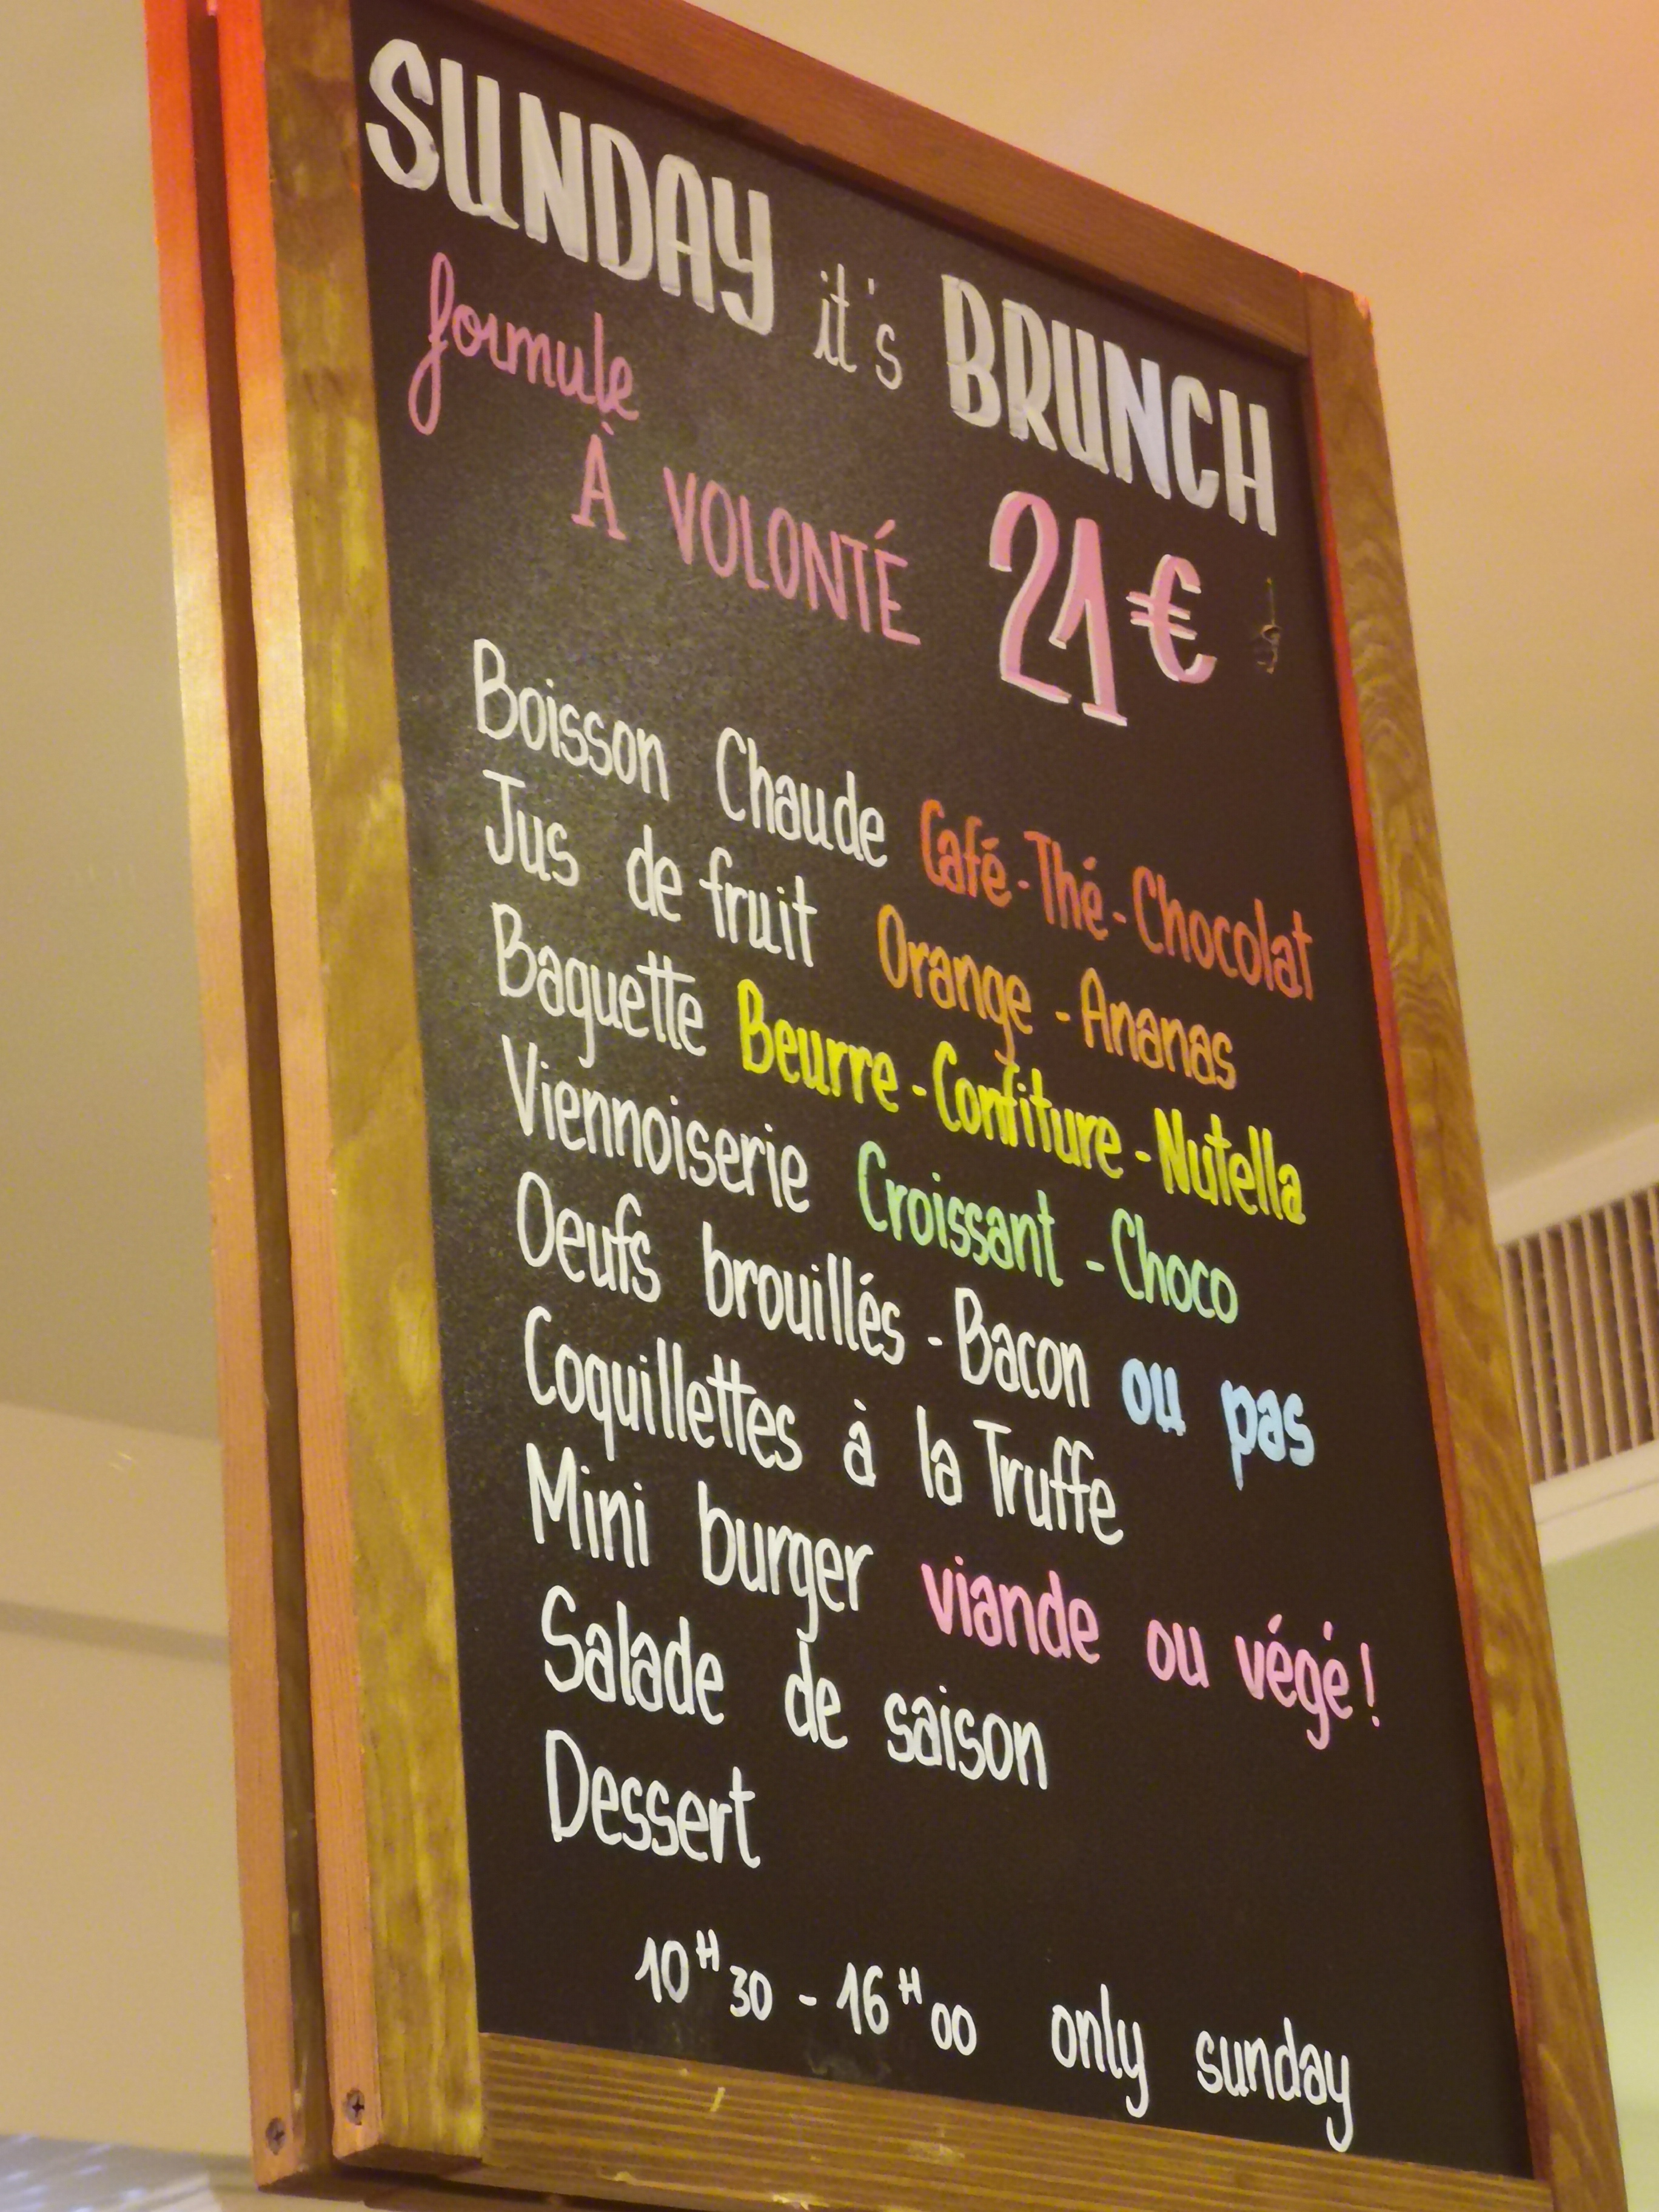 SUNDAY it's BRUNCH
formule
À VOLONTÉ 21€
Boisson Chaude Café-Thé-Chocolat
Jus de fruit Orange - Ananas
Baguette Beurre - Confiture - Nutella
Viennoiserie Croissant - Choco
Oeufs brouillés - Bacon ou pas
Coquillettes à la Truffe
Mini burger viande ou végé!
Salade de saison
Dessert
10H30 - 16H00 only sunday